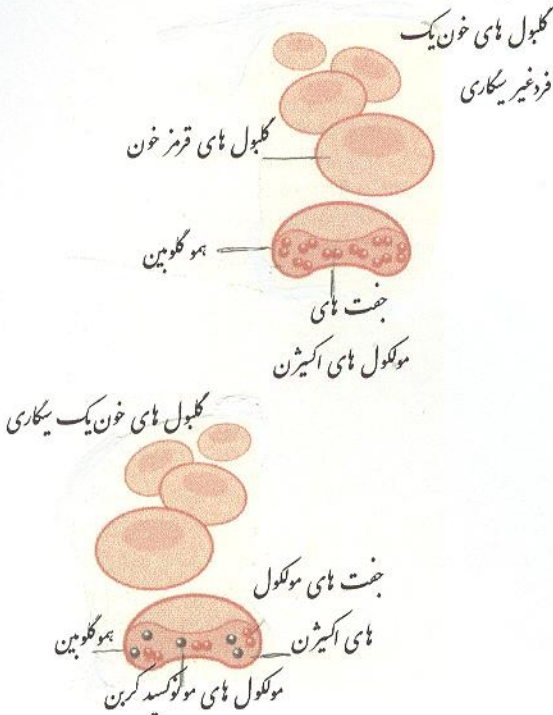 گلبول های خون یک
فرد غیر سیگاری
گلبول های قرمز خون
هموگلوبین
جفت های
مولکول های اکسیژن
گلبول های خون یک سیگاری
جفت های مولکول
های اکسیژن
هموگلوبین
مولکول های مونوکسید کربن